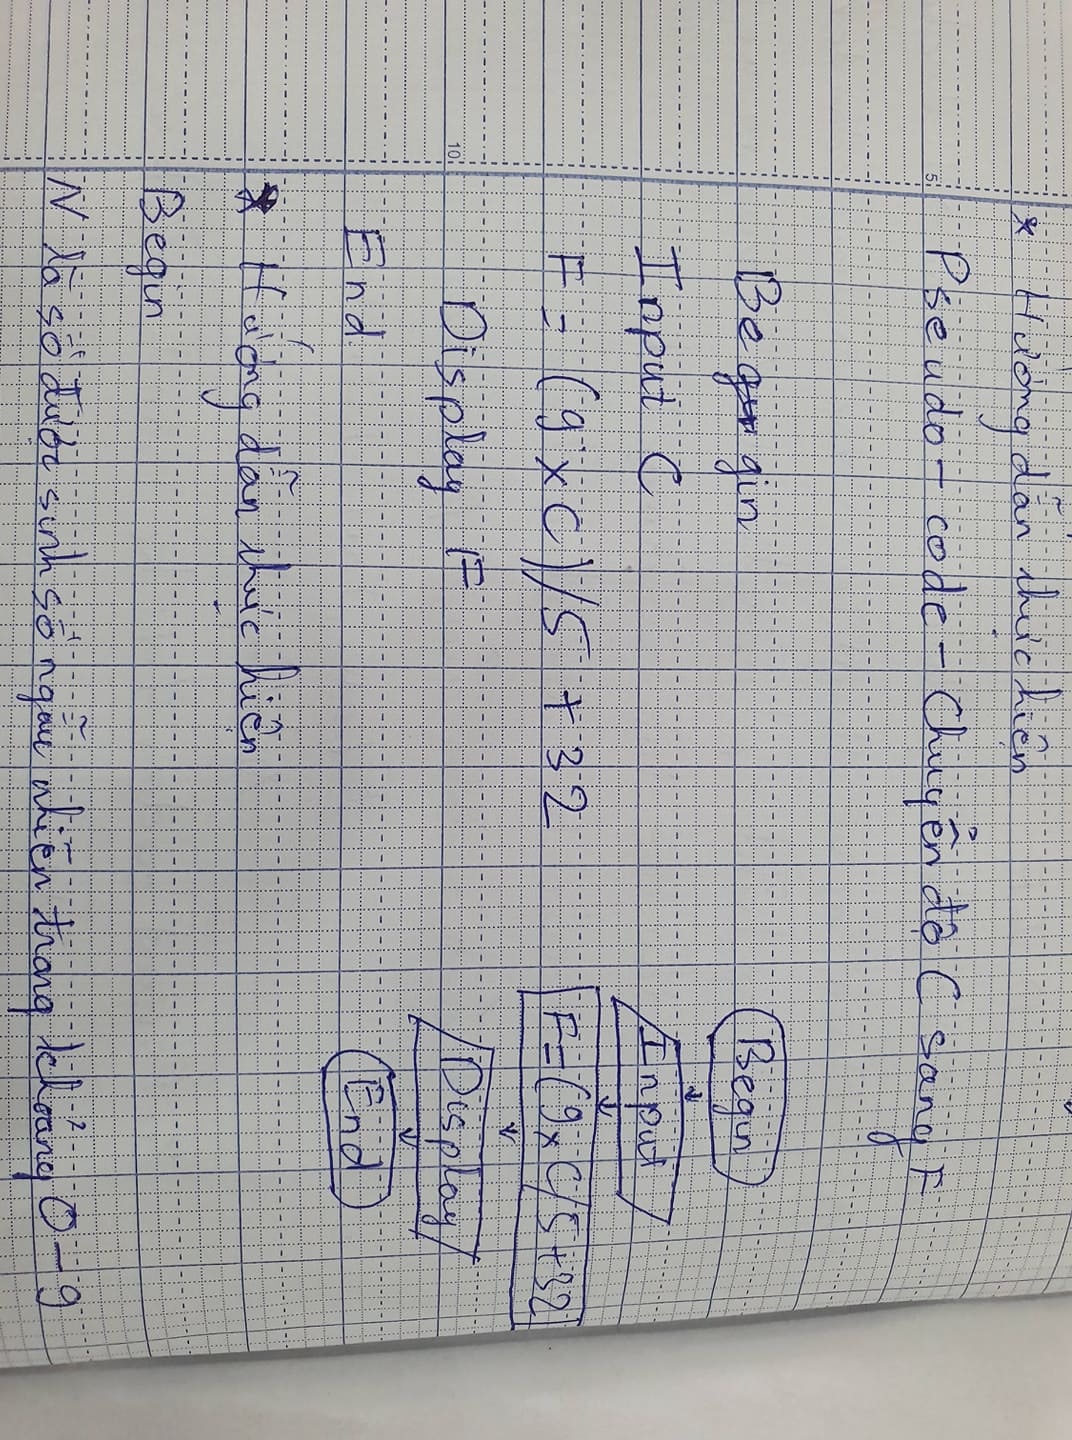 * Hướng dẫn thực hiện
5
Pseudo - code - Chuyển độ C sang F
Begin
Input C
F = (9 x C)/5 + 32
10
Display F
End
Begin
Input
F = (9 x C/5 + 32
Display
End
* Hướng dẫn thực hiện
Begin
N là số được sinh số ngẫu nhiên trong khoảng 0 - 9